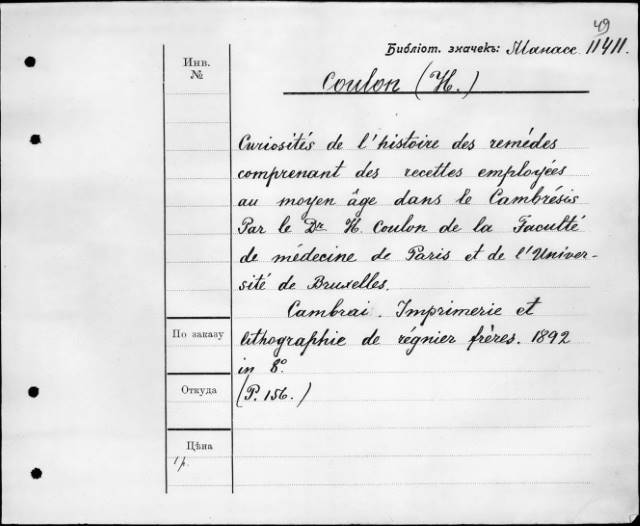 49
Библіот. значекъ: Манасс 11411.
Инв.
№
Coulon (H.)
Curiosités de l'histoire des remédes
comprenant des recettes employées
au moyen âge dans le Cambrésis
Par le Dr H. Coulon de la Faculté
de médecine de Paris et de l'Univer-
sité de Bruxelles.
Cambrai. Imprimerie et
По заказу
lithographie de régnier frères. 1892
in 8º.
Откуда
(P. 156.)
Цѣна
1 р.